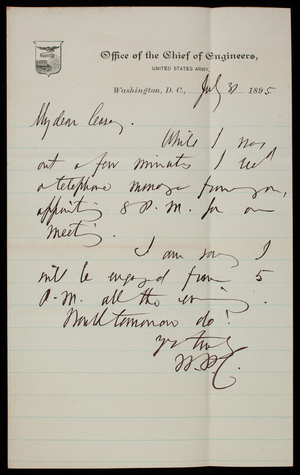 Office of the Chief of Engineers,
UNITED STATES ARMY,
Washington, D. C., July 1895
My dear Casey.
While I was
out a few minutes I rec'd
a telephone message from you,
appointing 8 P. M. for our
meeting.
I am sorry I
will be engaged from 5
P. M. all the evening.
Would tomorrow do?
Yrs truly